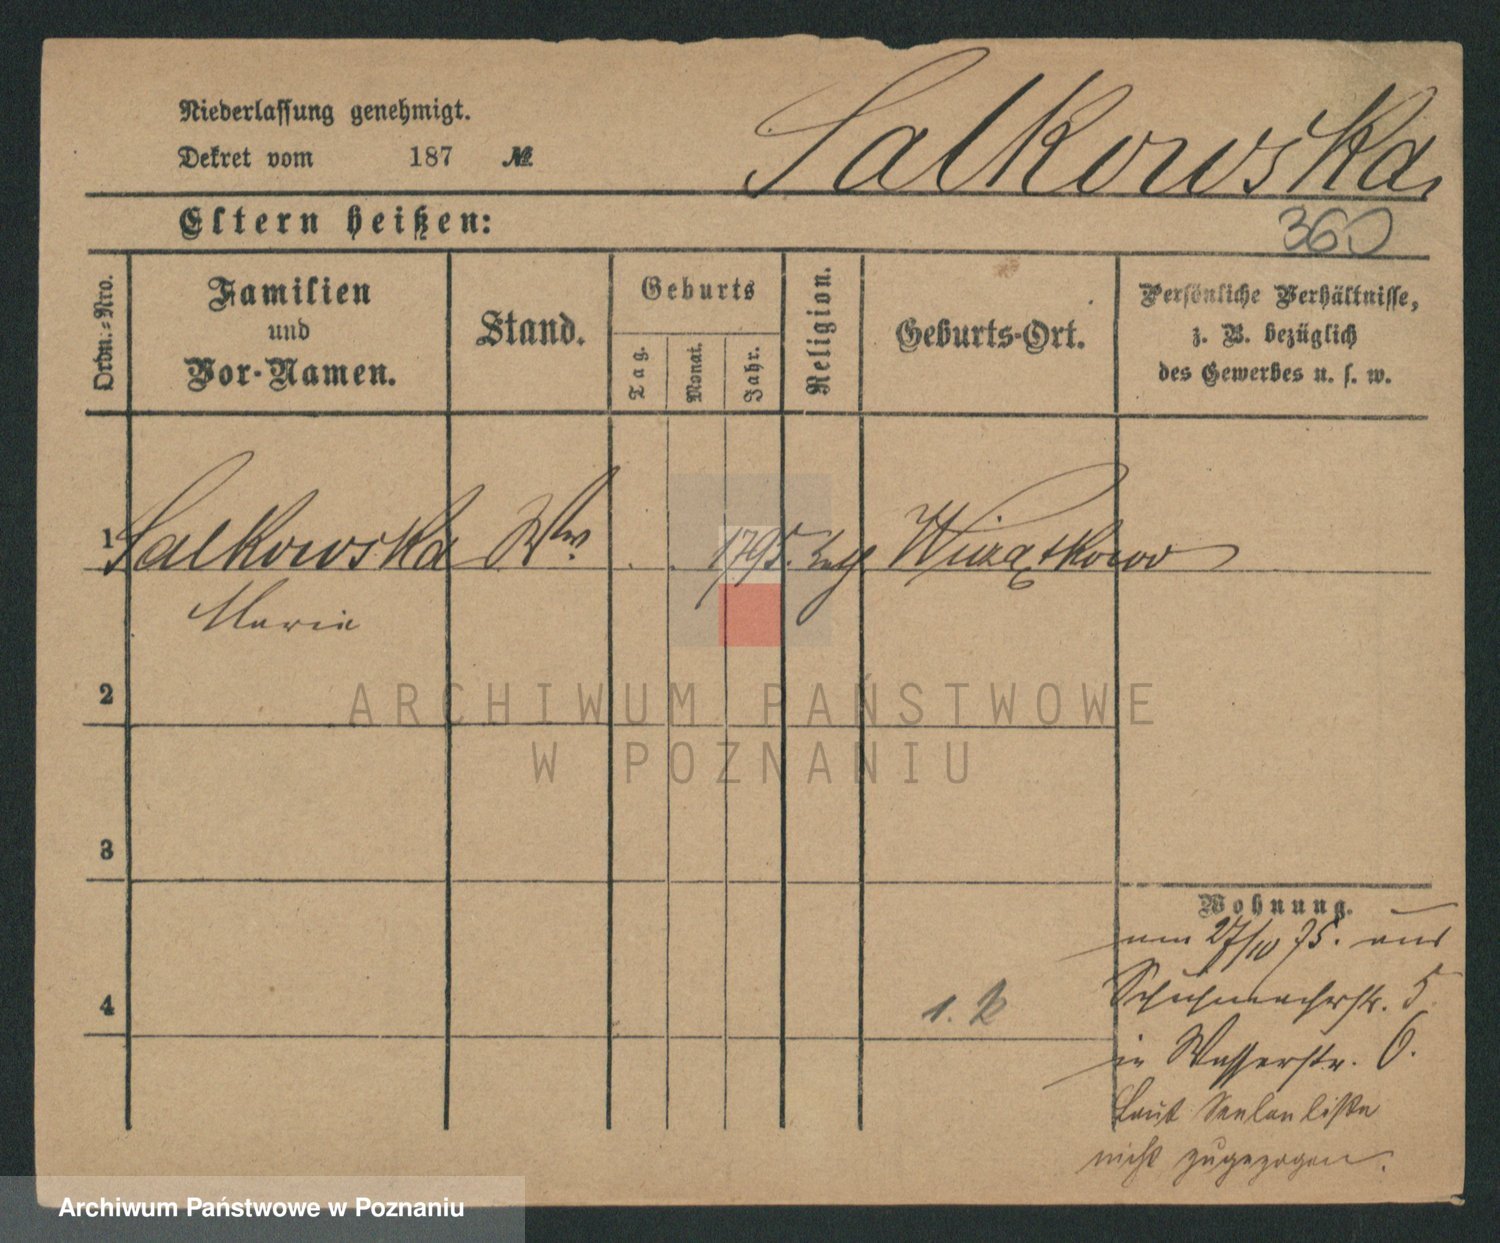 Niederlassung genehmigt.
Dekret vom 187 №
Salkowska
Eltern heißen:
360
Ordn.-Nro.
Familien
und
Vor-Namen.
Stand.
Geburts
Tag.
Monat.
Jahr.
Religion.
Geburts-Ort.
Persönliche Verhältnisse,
z. B. bezüglich
des Gewerbes u. s. w.
1 Salkowska Ww. . . 1795. kath
Maria
2
ARCHIWUM PAŃSTWOWE
W POZNANIU
3
Wohnung.
am 27/10 75. aus
Schuhmacherstr. 5.
4
1. k
in Wasserstr. 6.
Laut Seelenliste
nicht zugezogen.
Archiwum Państwowe w Poznaniu